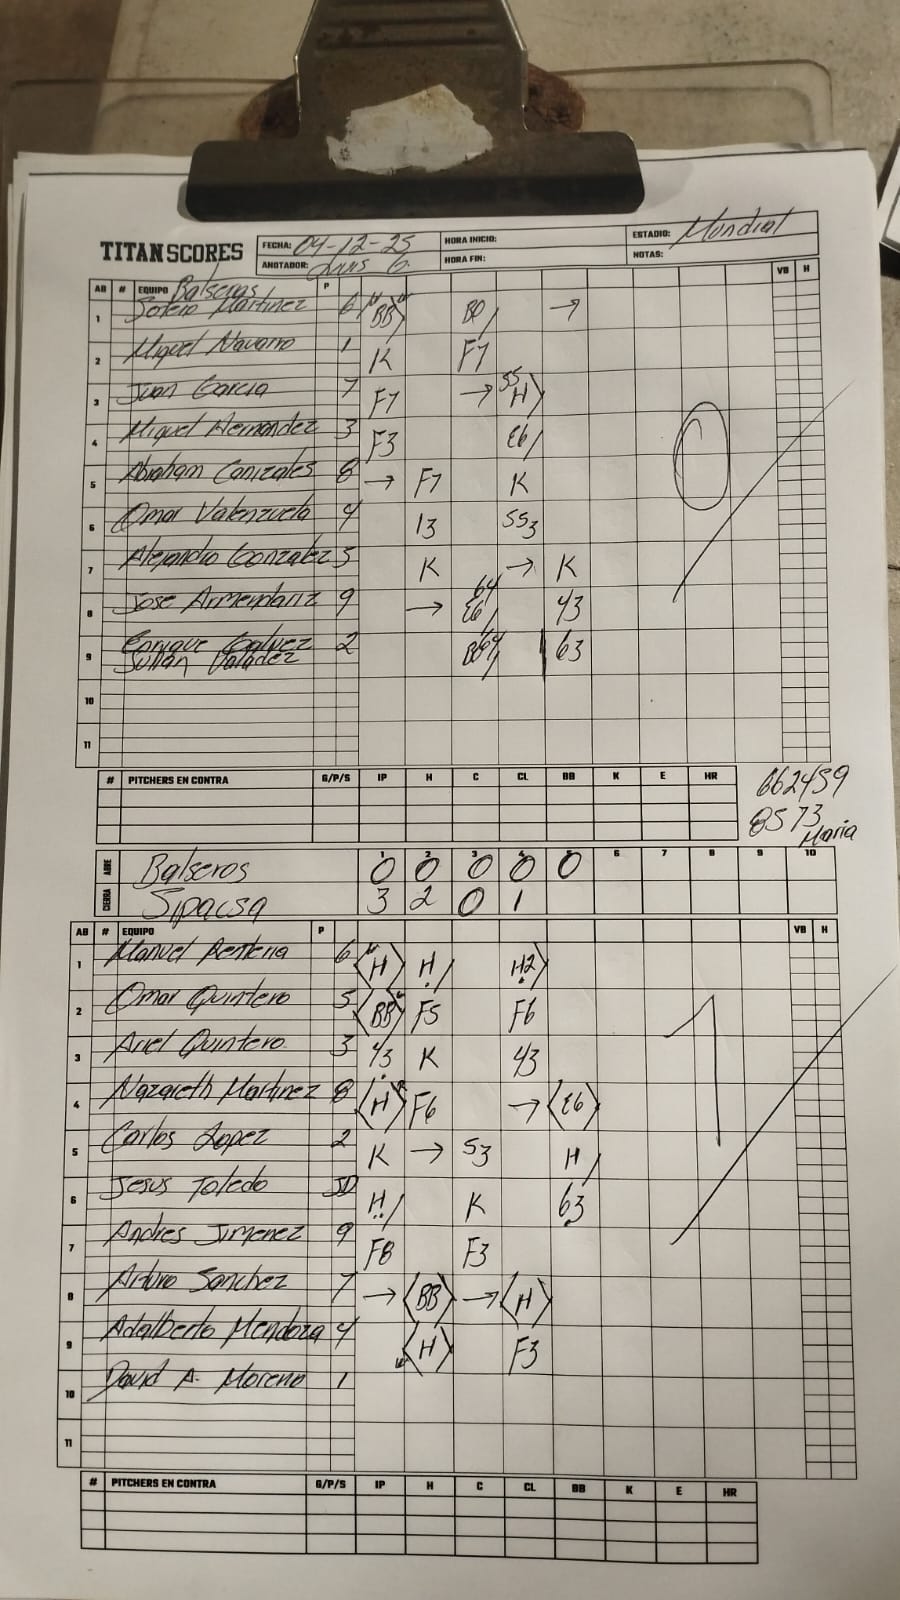 TITAN SCORES FECHA: 04-12-25 HORA INICIO: ESTADIO: Mundial
ANOTADOR: Luis G. HORA FIN: NOTAS:
AB # EQUIPO Balseros P VB H
1 Sotero Martinez 6 BB BO →
2 Miguel Navarro 1 K F7
3 Juan Garcia 7 F7 → 55 H
4 Miguel Hernandez 3 F3 E6
5 Abraham Canizales 8 → F7 K
6 Omar Valenzuela 4 13 553
7 Alejandro Gonzalez 5 K → K
8 Jose Armendariz 9 → 64 E6 43
9 Enrique Galvez 2 64 63
Julian Valadez
10
11
# PITCHERS EN CONTRA G/P/S IP H C CL BB K E HR
662459
8573
Maria
1 2 3 4 5 6 7 8 9 10
ABRE Balseros 0 0 0 0 0
CIERRA Sipacsa 3 2 0 1
AB # EQUIPO P VB H
1 Manuel Renteria 6 H H H2
2 Omar Quintero 5 BB F5 F6
3 Ariel Quintero 3 43 K 43
4 Nazareth Martinez 8 H F6 → E6
5 Carlos Lopez 2 K → 53 H
6 Jesus Toledo JD H K 63
7 Andres Jimenez 9 F8 F3
8 Arturo Sanchez 7 → BB → H
9 Adalberto Mendoza 4 H F3
10 David A. Moreno 1
11
# PITCHERS EN CONTRA G/P/S IP H C CL BB K E HR